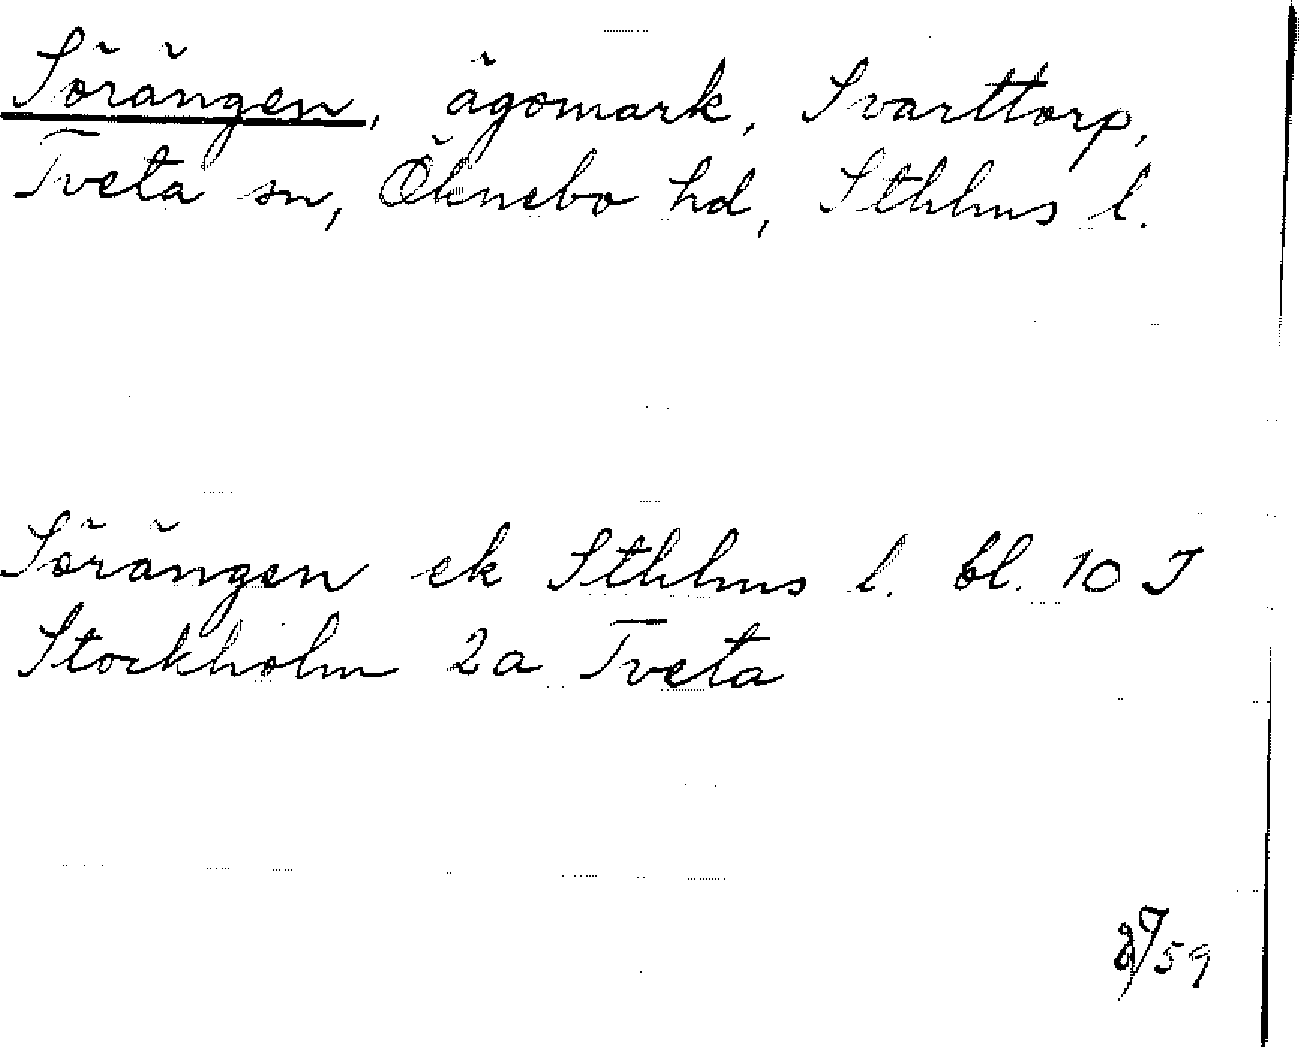 Sörängen, ägomark, Svarttorp,
Tveta sn, Öknebo hd, Sthlms l.
Sörängen ek Sthlms l. bl. 10 J
Stockholm 2a Tveta
59